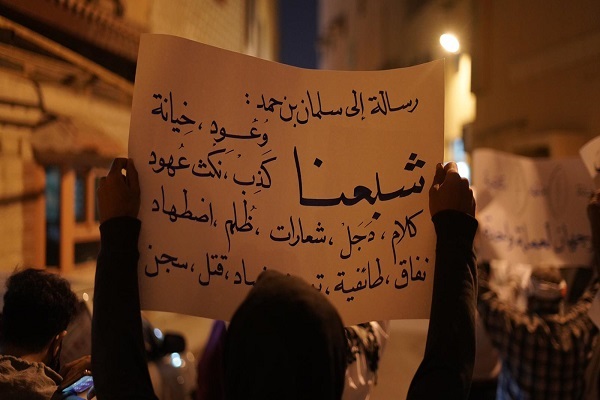 رسالة إلى سلمان بن حمد :
شبعنا
وُعُود، خيانة
كَذِب، نكث عُهود
كلام، دَجَل، شعارات، ظُلم، اضطهاد
نفاق، طائفية، قتل، سجن